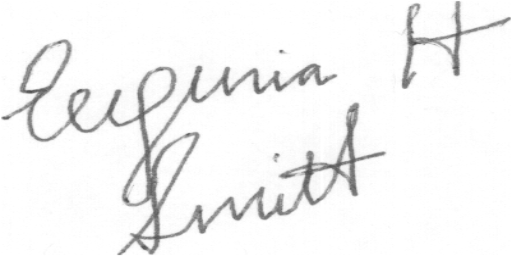 Eugenia H
Smitt